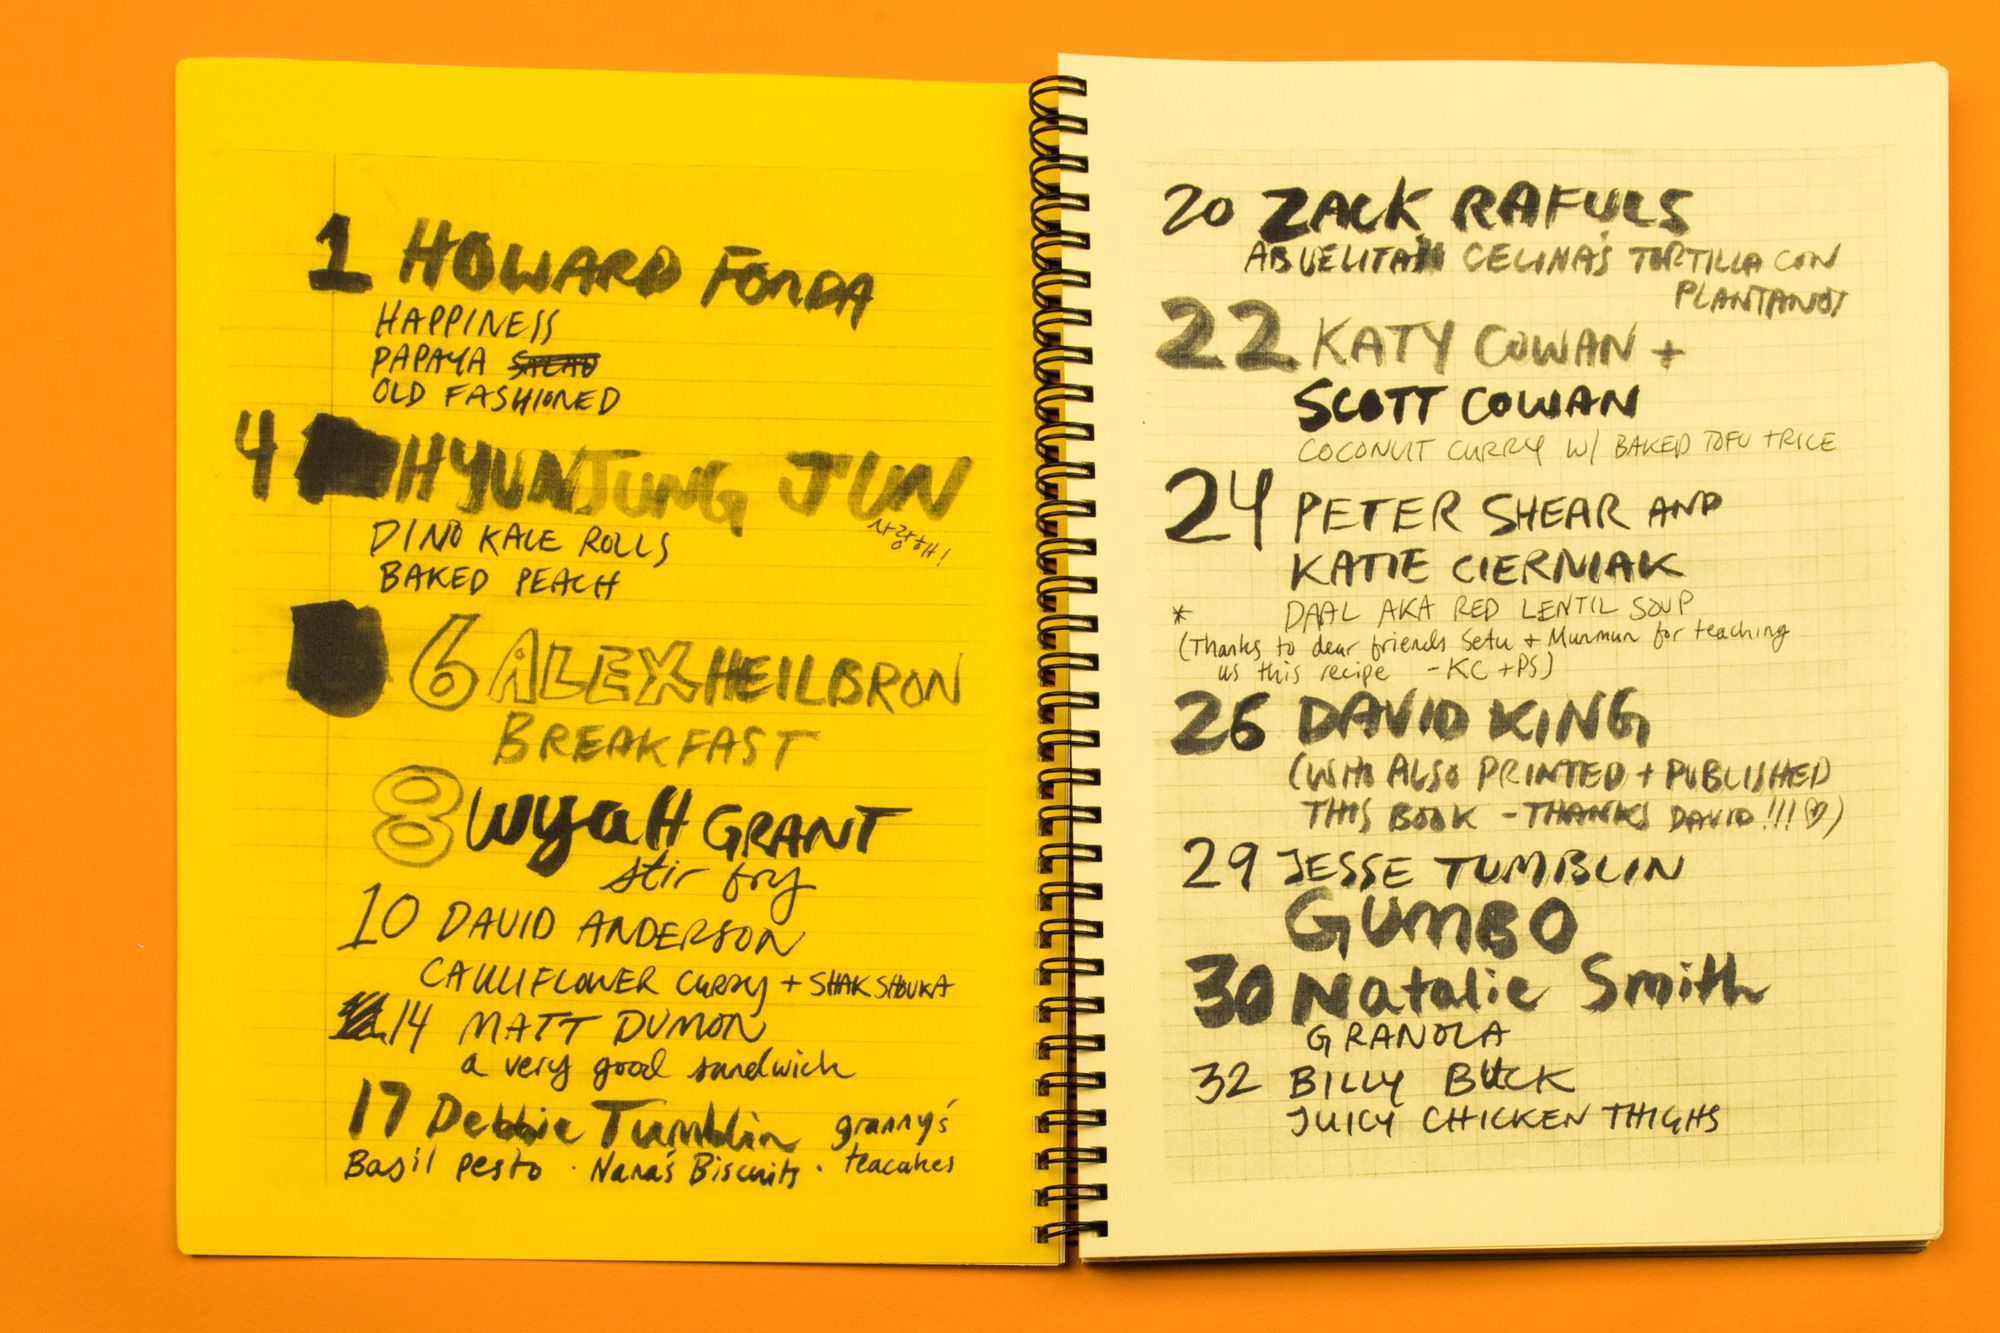 1 HOWARD FONDA
HAPPINESS
PAPAYA SALAD
OLD FASHIONED
4 HYUNJUNG JUN
사랑해!
DINO KALE ROLLS
BAKED PEACH
6 ALEX HEILBRON
BREAKFAST
8 Wyatt GRANT
stir fry
10 DAVID ANDERSON
CAULIFLOWER CURRY + SHAKSHOUKA
14 MATT DUMON
a very good sandwich
17 Debbie Tumblin
Basil pesto · Nana's Biscuits · granny's
teacakes
20 ZACK RAFULS
ABUELITA CELINA'S TORTILLA CON
PLANTANOS
22 KATY COWAN +
SCOTT COWAN
COCONUT CURRY W/ BAKED TOFU + RICE
24 PETER SHEAR AND
KATIE CIERNIAK
* DAAL AKA RED LENTIL SOUP
(Thanks to dear friends Setu + Munmun for teaching
us this recipe -KC +PS)
26 DAVID KING
(WHO ALSO PRINTED + PUBLISHED
THIS BOOK - THANKS DAVID!!! ♡)
29 JESSE TUMBLIN
GUMBO
30 Natalie Smith
GRANOLA
32 BILLY BUCK
JUICY CHICKEN THIGHS